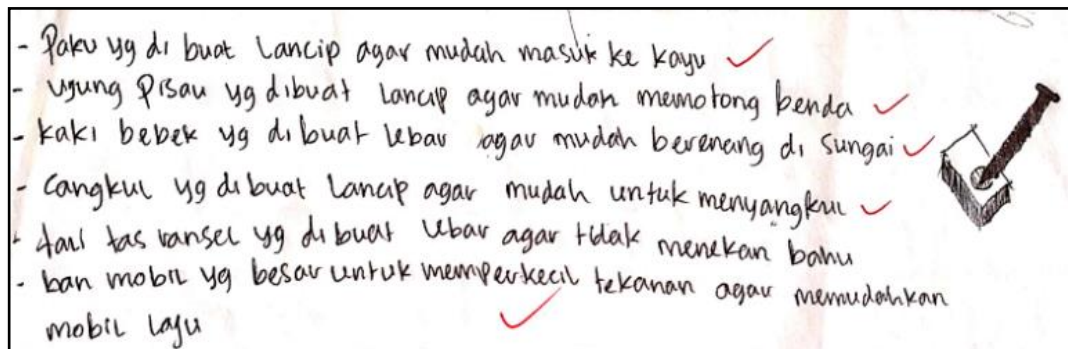 - Paku yg di buat Lancip agar mudah masuk ke kayu
- ujung Pisau yg dibuat Lancip agar mudah memotong benda
- kaki bebek yg di buat lebar agar mudah berenang di sungai
- Cangkul yg di buat Lancip agar mudah untuk menyangkul
- tali tas ransel yg di buat lebar agar tidak menekan bahu
- ban mobil yg besar untuk memperkecil tekanan agar memudahkan
mobil laju